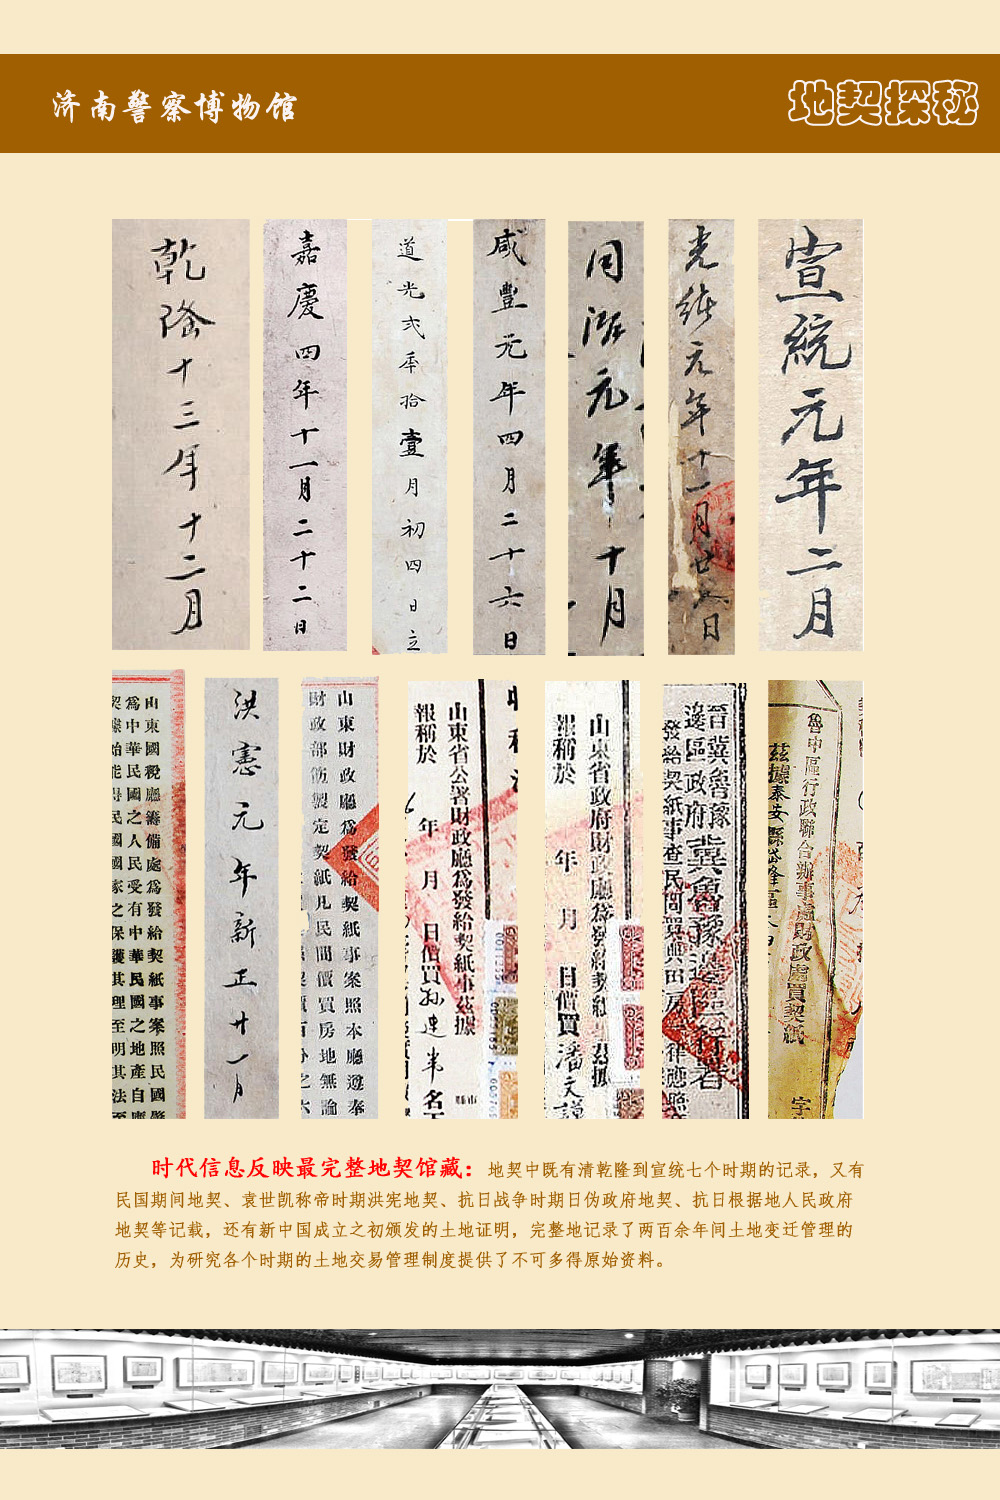 济南警察博物馆
地契探秘
乾隆十三年十二月
嘉慶四年十一月二十二日
道光弍年拾壹月初四日立
咸豐元年四月二十六日
同治元年十月
光緒元年十一月廿
日
宣統元年二月
山東國稅廳籌備處為發給契紙事案照民國
為中華民國之人民受有中華民國之地產自
國家之保護其理至明其法至
洪憲元年新正廿一月
山東財政廳為發給契紙事案照本廳遵奉
財政部飭製定契紙凡民間價買房地無論
山東省公署財政廳為發給契紙事茲據
報稱於 年 月 日價買
山東省政府財政廳為發給契紙 茲據
報稱於 年 月 日價買潘文
晉冀魯豫
邊區政府
冀魯豫邊區行署
發給契紙事查民間買典田房
魯中區行政聯合辦事處財政處買契紙
茲據泰安縣岱峰區
时代信息反映最完整地契馆藏：地契中既有清乾隆到宣统七个时期的记录，又有
民国期间地契、袁世凯称帝时期洪宪地契、抗日战争时期日伪政府地契、抗日根据地人民政府
地契等记载，还有新中国成立之初颁发的土地证明，完整地记录了两百余年间土地变迁管理的
历史，为研究各个时期的土地交易管理制度提供了不可多得原始资料。